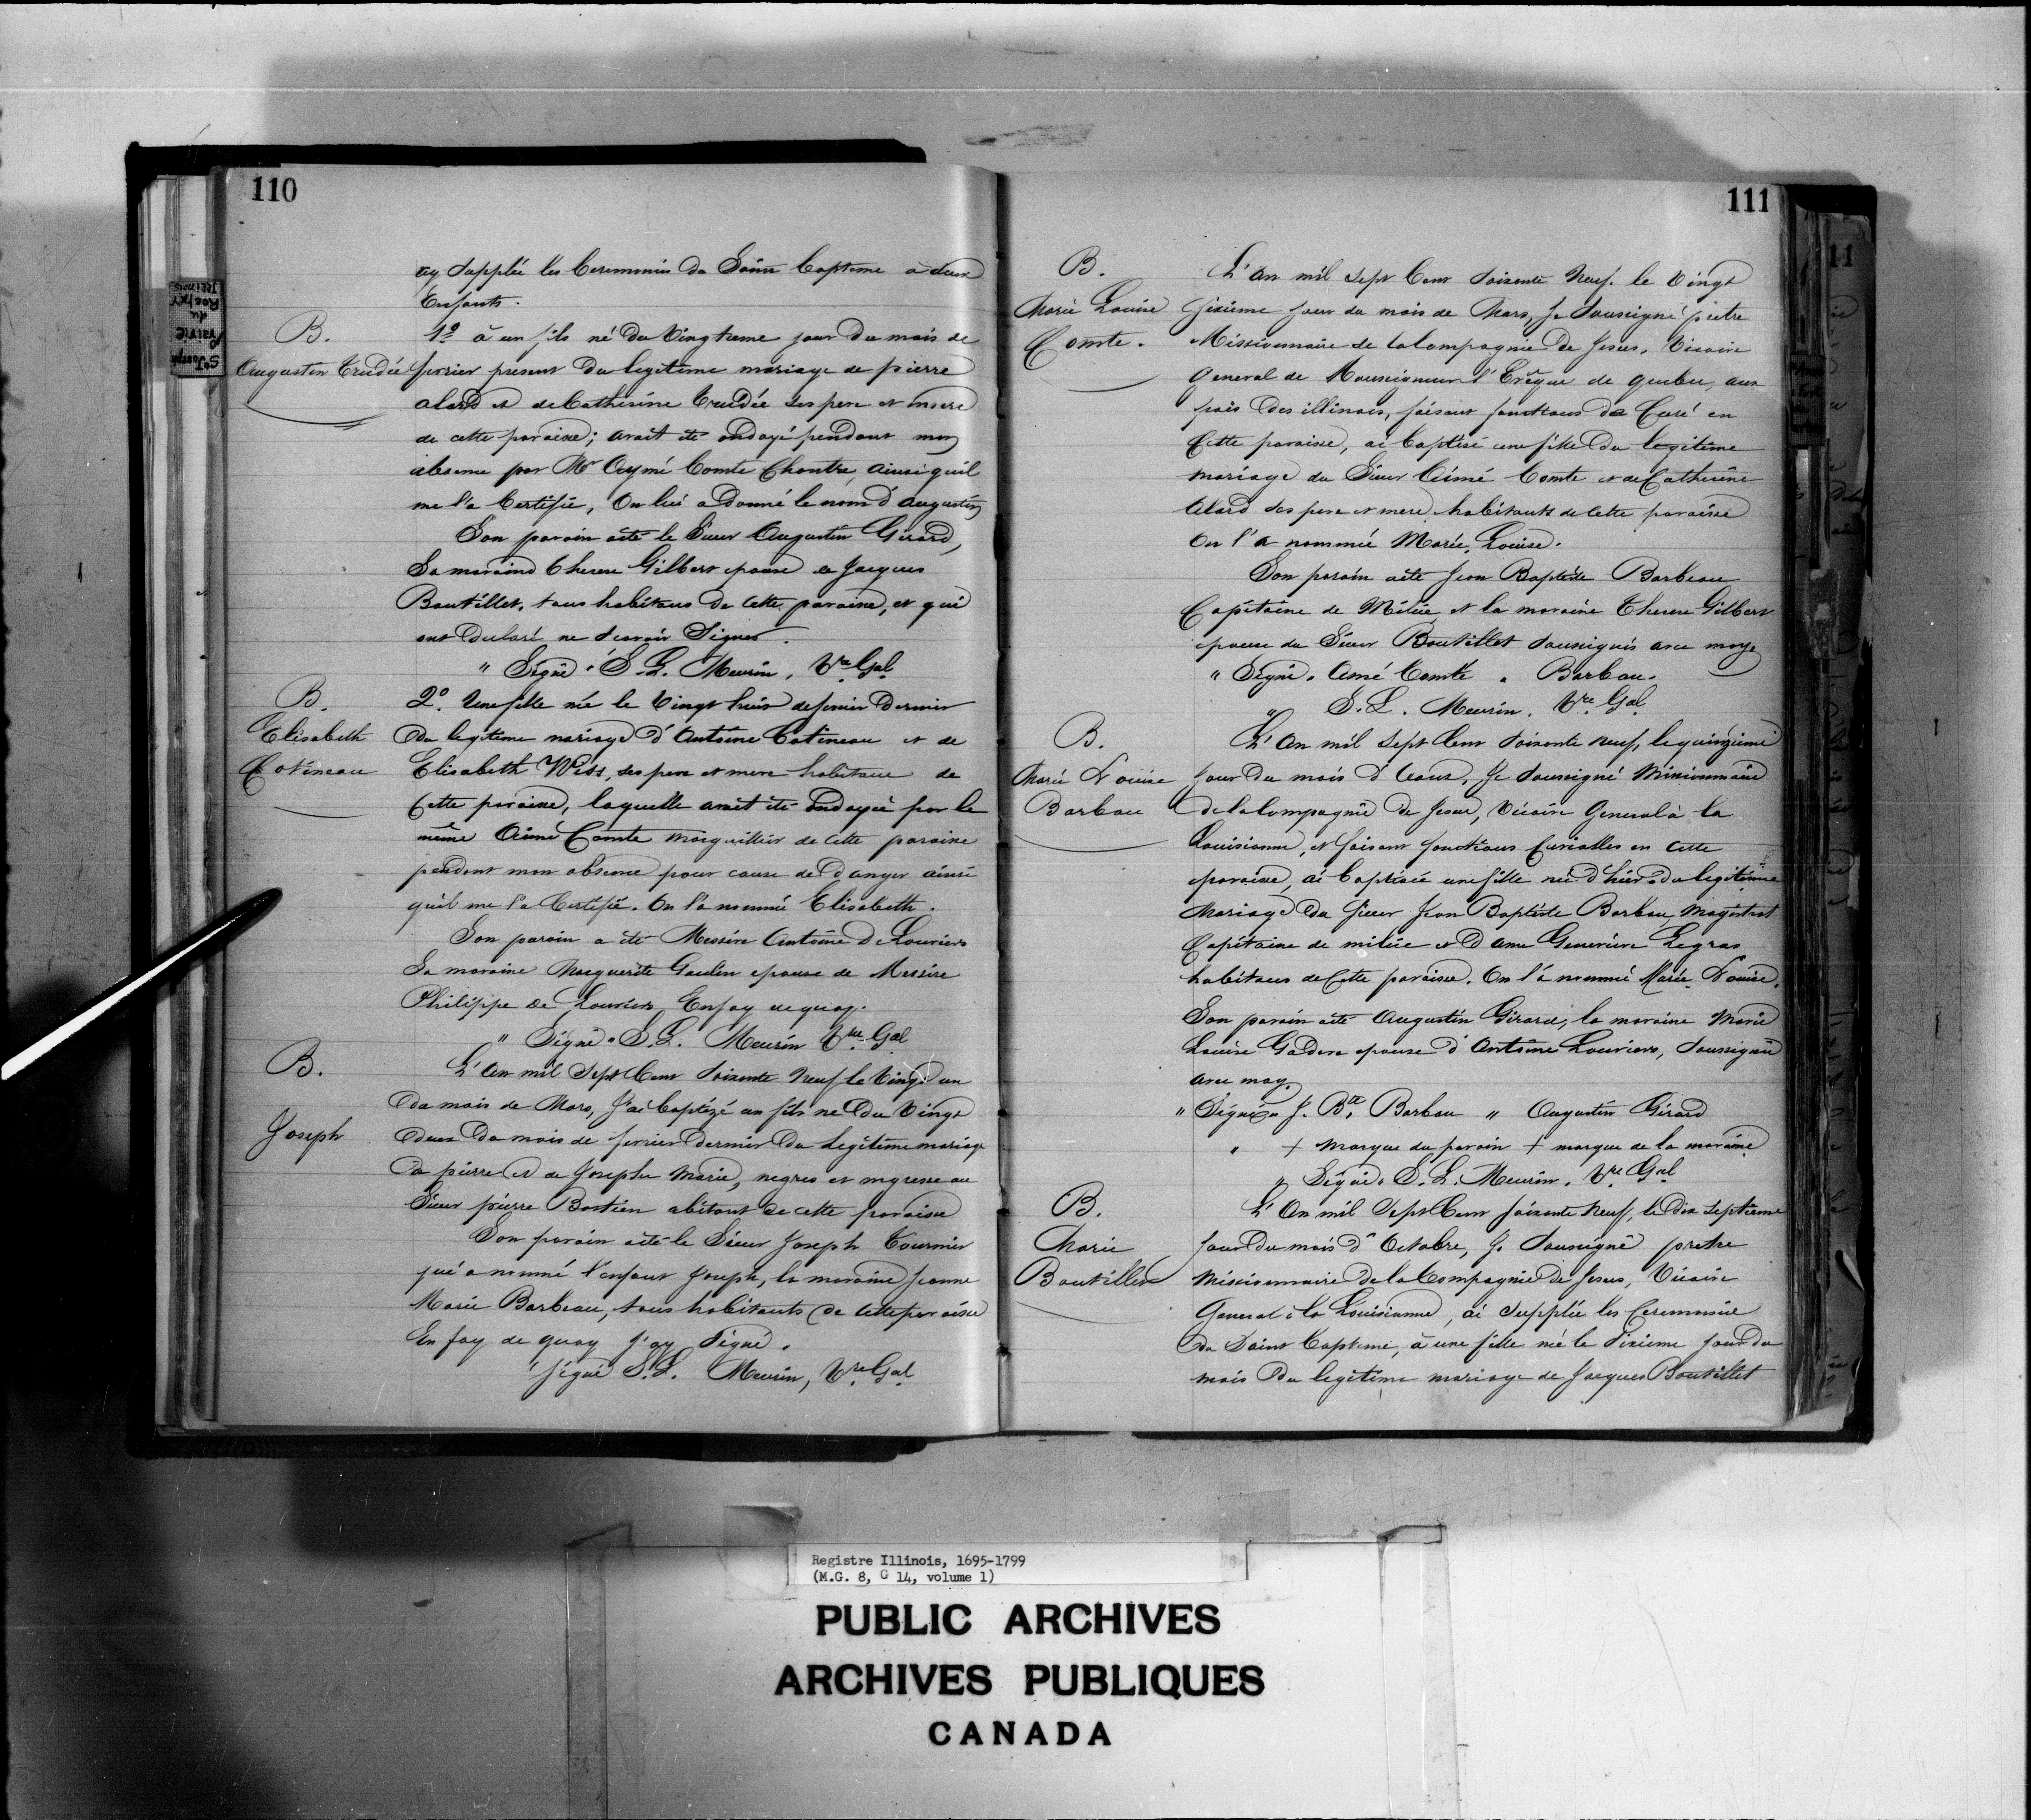 110
ay supplée les Ceremonies du Saint Bapteme à deux
Enfants.
B.
Augustin Trudée
1º à un fils né du Vingtieme jour du mois de
fevrier present du legitime mariage de pierre
alard et de Catherine Trudée ses pere et mere
de cette paroisse; avait été ondoyé pendant mon
absence par Mr Aymé Comte Chantre, ainsi qu'il
me l'a Certifié, On lui a donné le nom d'Augustin
Son parain a été le Sieur Augustin Girard,
Sa maraine Therese Gilbert epouse de Jacques
Boutillet, tous habitans de Cette paroisse, et qui
ont declaré ne scavoir Signer.
" Signé " S. L. Meurin, Vre Gal
B.
Elisabeth
Cotineau
2º. Une fille née le Vingt huit de fevrier Dernier
du legitime mariage d'Antoine Cotineau et de
Elisabeth Wiss, ses pere et mere habitans de
Cette paroisse, laquelle avait été ondoyée par le
même Aimé Comte Marguillier de Cette paroisse
pendant mon absence pour cause de Danger ainsi
qu'il me l'a Certifié. On l'a nommé Elisabeth.
Son parain a été Messire Antoine De Louviers
Sa maraine Marguerite Gaulin epouse de Messire
Philippe De Louviers, En foy de quoy.
" Signé " S. L. Meurin Vre Gal
B.
Joseph
L'An mil Sept Cent Soixante Neuf le Vingt un
du mois de Mars, J'ai baptizé un fils né du Vingt
deux du mois de fevrier Dernier du Legitime mariage
de pierre et de Josephe Marie, negres et negresse au
Sieur pierre Bastien abitant de cette paroisse
Son parain a été le Sieur Joseph Tournier
qui a nommé l'enfant Joseph, la maraine Jeanne
Marie Barbeau, tous habitants de Cette paroisse
En foy de quoy j'ay Signé.
" Signé S. L. Meurin, Vre Gal
St Joseph
Prairie
du
Rocher
Illinois
111
B.
Marie Louise
Comte.
L'An mil Sept Cent Soixante Neuf. le Vingt
Sixieme jour du mois de Mars, Je Soussigné prêtre
Missionnaire de la Compagnie De Jesus, Vicaire
General de Monseigneur l'Evêque de quebec, aux
païs des illinois, faisant fonctions de Curé en
Cette paroisse, ai baptisé une fille du legitime
mariage du Sieur Aimé Comte et de Catherine
Alard ses pere et mere habitants de Cette paroisse
On l'a nommée Marie Louise.
Son parain a été Jean Baptiste Barbeau
Capitaine de Milice et la maraine Therese Gilbert
epouse du Sieur Boutillet Soussignés avec moy
" Signé " Amé Comte " Barbeau.
" S. L. Meurin. Vre Gal
B.
Marie Louise
Barbeau
L'An mil Sept Cent Soixante neuf, le quinzieme
jour du mois d'Aoust, Je Soussigné Missionnaire
de la Compagnie de Jesus, Vicaire General à la
Louisianne, et faisant fonctions Curialles en Cette
paroisse, ai baptisée une fille née d'hier du legitime
Mariage du Sieur Jean Baptiste Barbau, Magistrat
Capitaine de milice et Dame Genevieve Legras
habitans de Cette paroisse. On l'a nommé Marie Louise.
Son parain a été Augustin Girard, la maraine Marie
Louise Gadere epouse d'Antoine Louviers, Soussigné
avec moy.
" Signé " J. Bte Barbau " Augustin Girard
" + Marque du parain + marque de la maraine
" Signé " S. L. Meurin. Vre Gal
B.
Marie
Boutillet
L'An mil Sept Cent Soixante Neuf, le dix Septieme
jour du mois d'Octobre, Je Soussigné pretre
Missionnaire de la Compagnie de Jesus, Vicaire
General à la Louisianne, ai Supplée les Ceremonies
du Saint Bapteme, à une fille née le Sixieme jour du
mois du legitime mariage de Jacques Boutillet
11
Registre Illinois, 1695-1799
(M.G. 8, G 14, volume 1)
PUBLIC ARCHIVES
ARCHIVES PUBLIQUES
CANADA